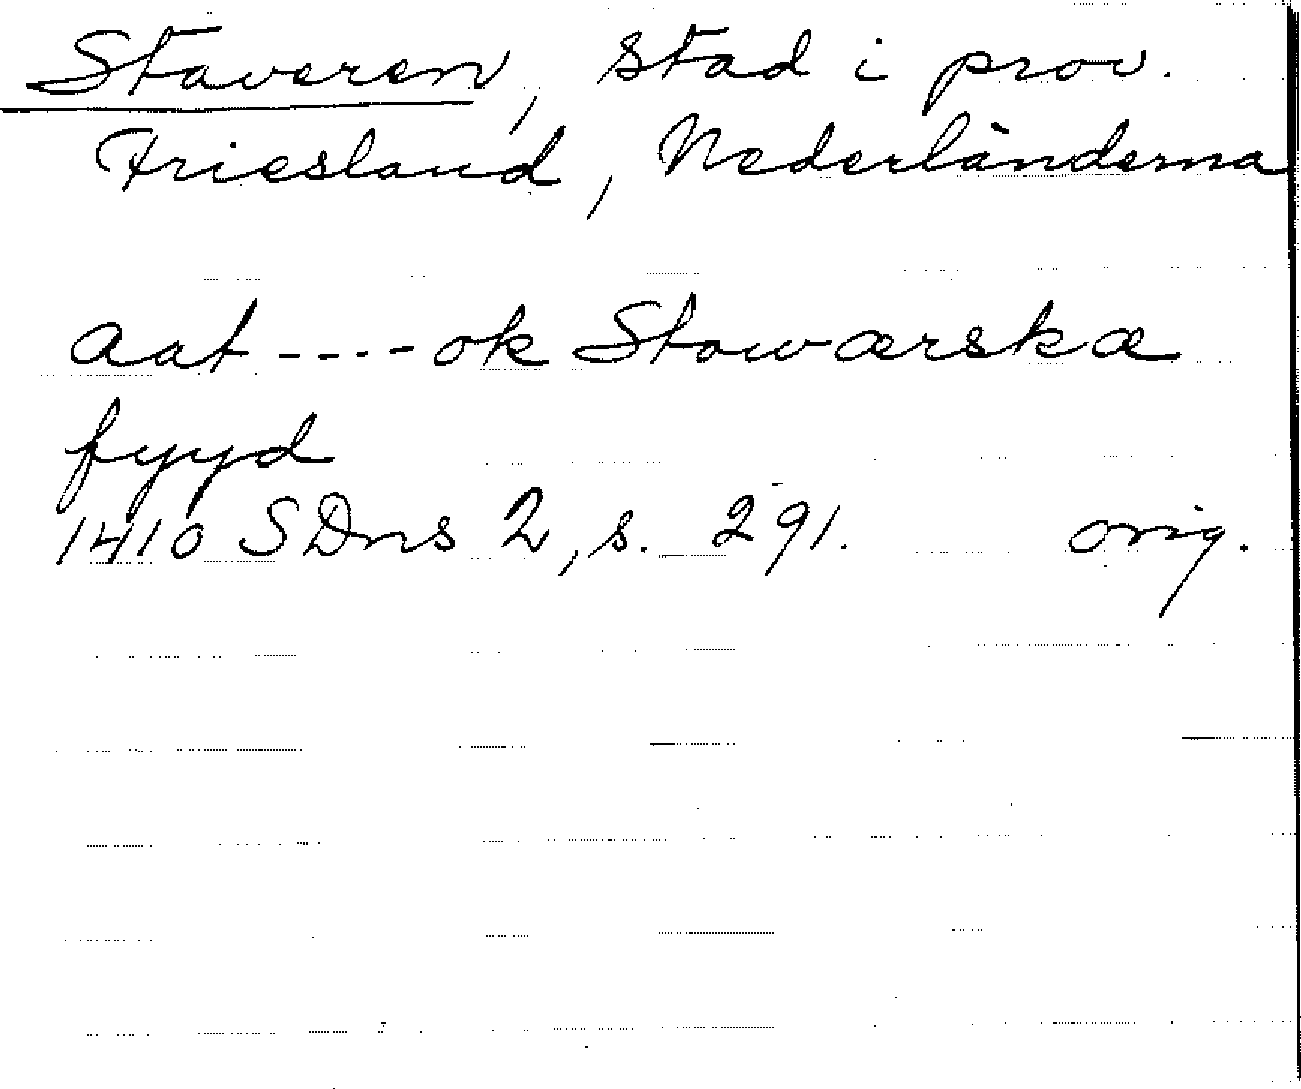 Staveren, stad i prov.
Friesland, Nederländerna
aat ---- ok Stowærskæ
fyyd
1410 SDns 2, s. 291. orig.